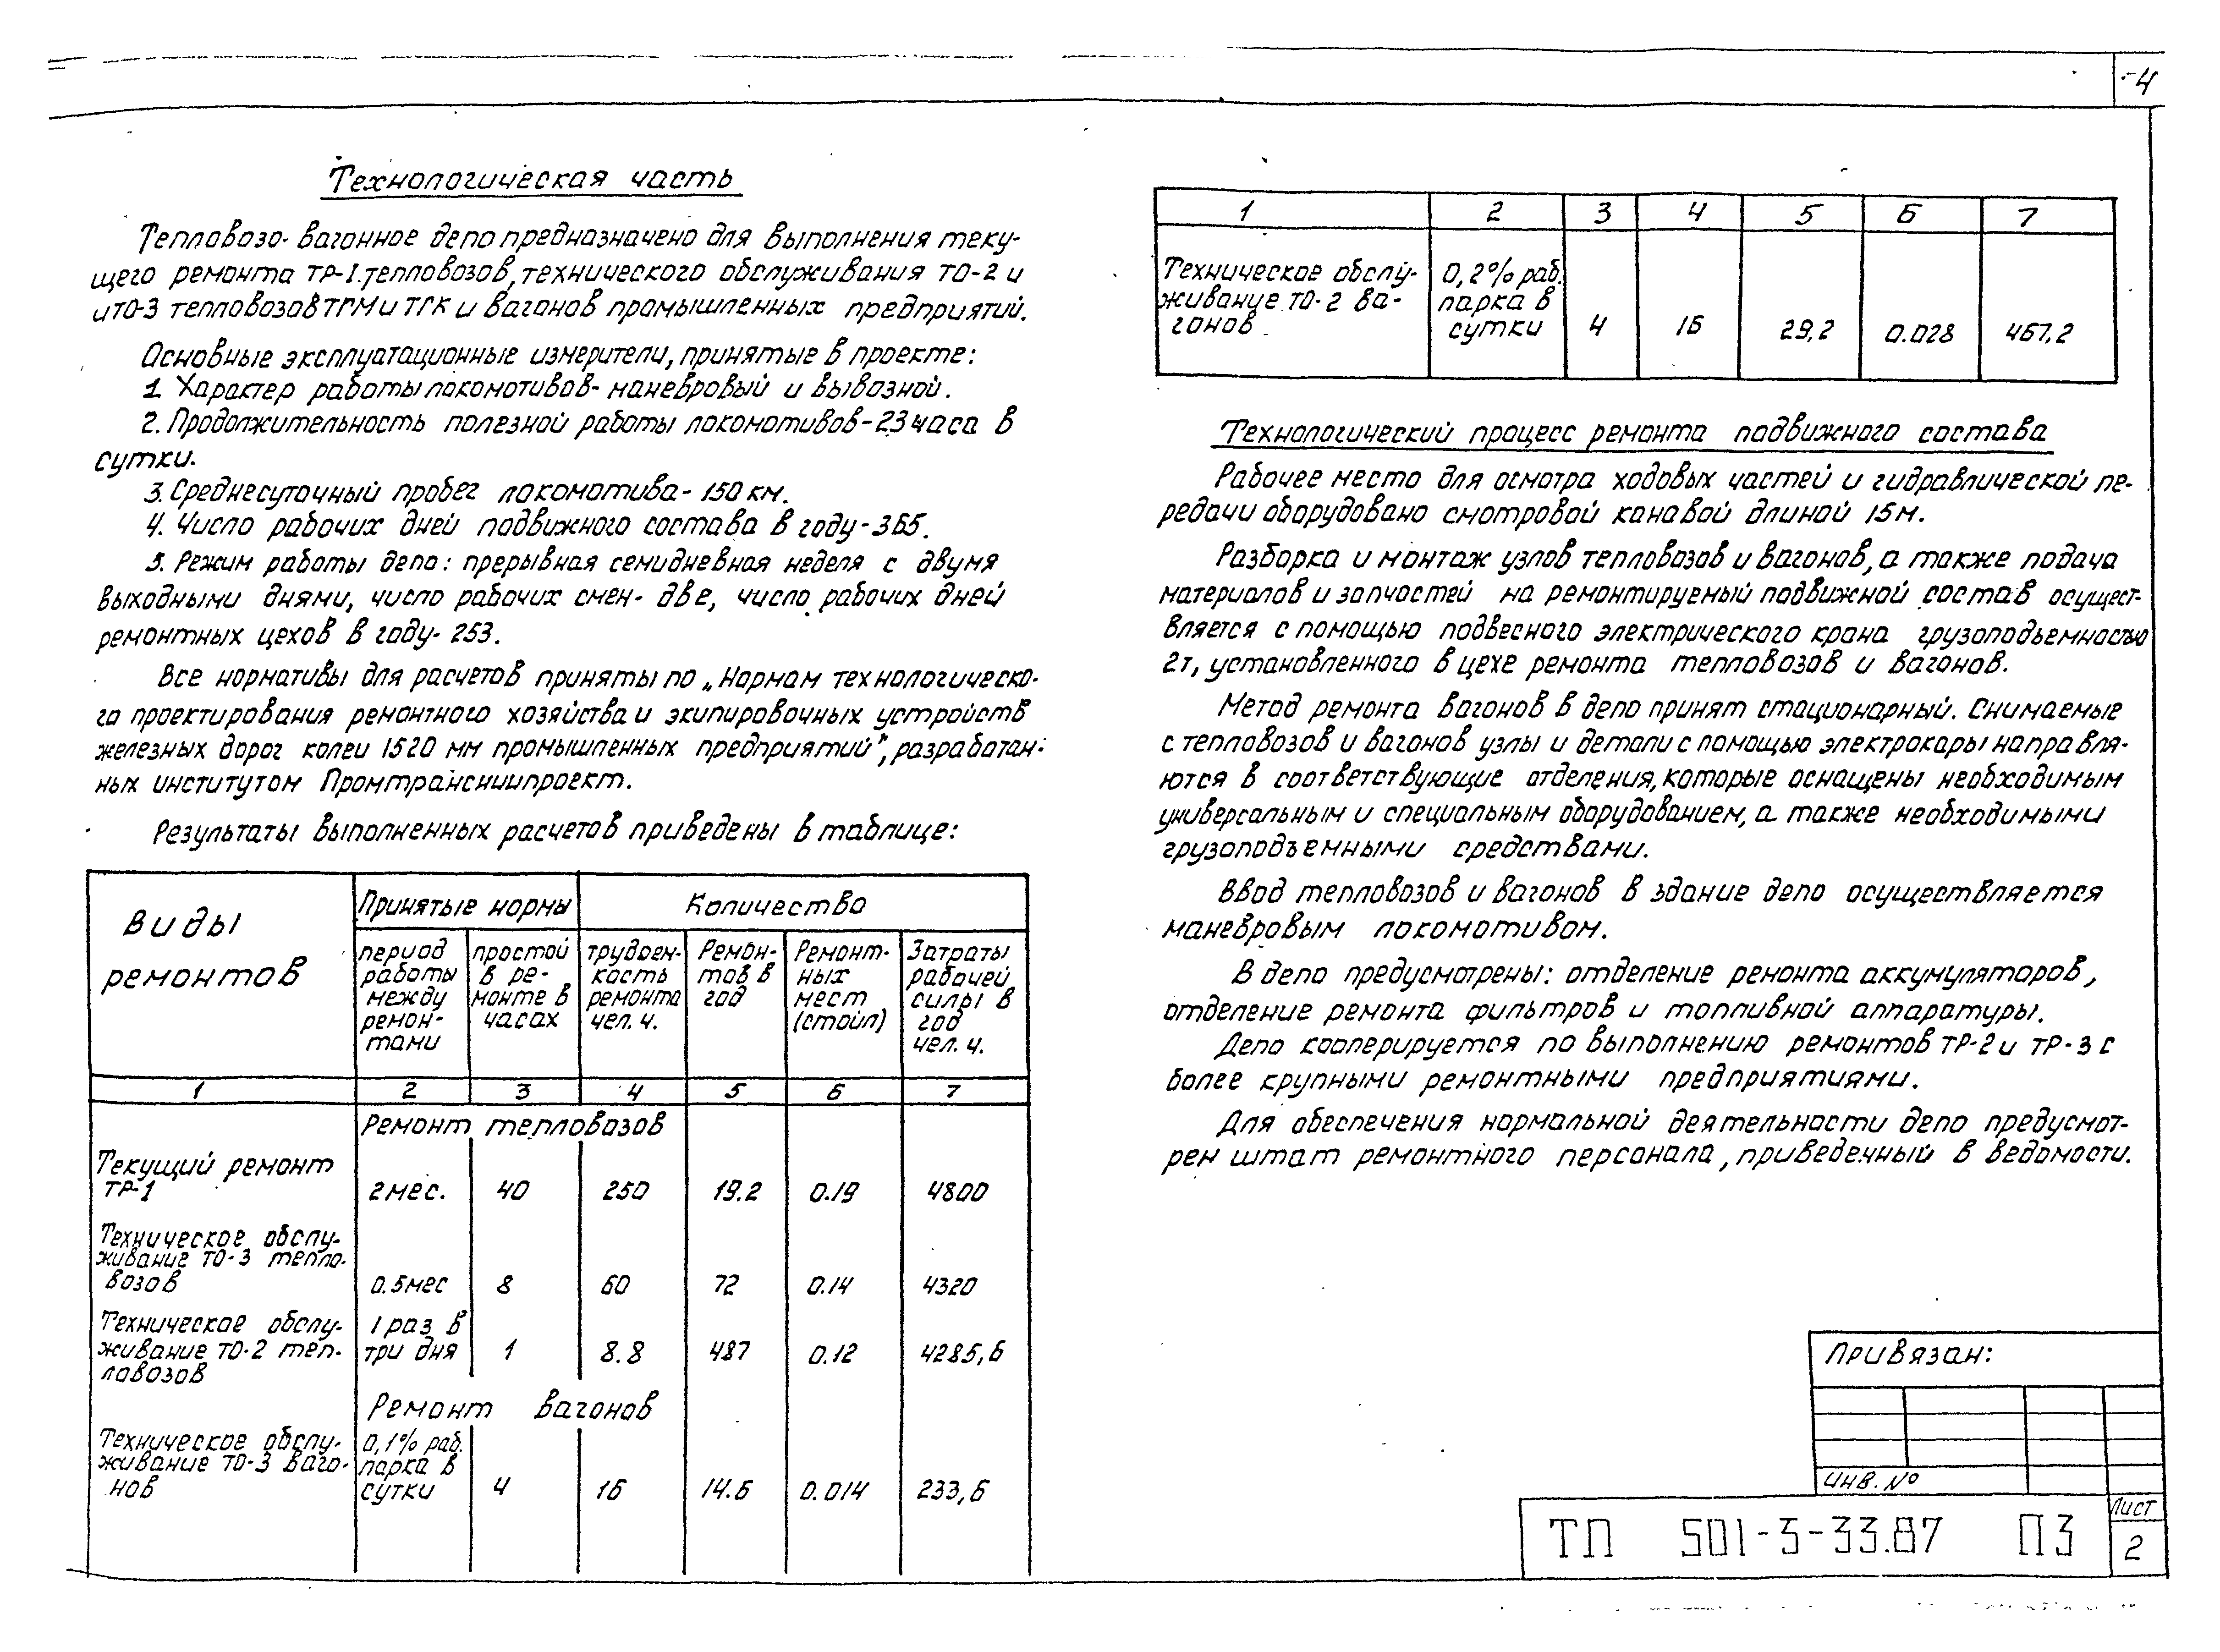 -4
Технологическая часть
Тепловозо-вагонное депо предназначено для выполнения теку-
щего ремонта ТР-1 тепловозов, технического обслуживания ТО-2 и
и ТО-3 тепловозов ТГМ и ТГК и вагонов промышленных предприятий.
Основные эксплуатационные измерители, принятые в проекте:
1. Характер работы локомотивов - маневровый и вывозной.
2. Продолжительность полезной работы локомотивов - 23 часа в
сутки.
3. Среднесуточный пробег локомотива - 150 км.
4. Число рабочих дней подвижного состава в году - 365.
5. Режим работы депо: прерывная семидневная неделя с двумя
выходными днями, число рабочих смен - две, число рабочих дней
ремонтных цехов в году - 253.
Все нормативы для расчетов приняты по „Нормам технологическо-
го проектирования ремонтного хозяйства и экипировочных устройств
железных дорог колеи 1520 мм промышленных предприятий", разработан-
ных институтом Промтрансниипроект.
Результаты выполненных расчетов приведены в таблице:
Виды
ремонтов
Принятые нормы
Количество
период
работы
между
ремон-
тами
простой
в ре-
монте в
часах
трудоем-
кость
ремонта
чел. ч.
Ремон-
тов в
год
Ремонт-
ных
мест
(стойл)
Затраты
рабочей
силы в
год
чел. ч.
1 2 3 4 5 6 7
Ремонт тепловозов
Текущий ремонт
ТР-1 2 мес. 40 250 19.2 0.19 4800
Техническое обслу-
живание ТО-3 тепло-
возов 0.5 мес 8 60 72 0.14 4320
Техническое обслу- 1 раз в
живание ТО-2 теп- три дня 1 8.8 487 0.12 4285,6
ловозов
Ремонт вагонов
Техническое обслу- 0,1% раб.
живание ТО-3 ваго- парка в
нов сутки 4 16 14.6 0.014 233,6
1 2 3 4 5 6 7
Техническое обслу- 0,2% раб.
живание ТО-2 ва- парка в
гонов сутки 4 16 29,2 0.028 467,2
Технологический процесс ремонта подвижного состава
Рабочее место для осмотра ходовых частей и гидравлической пе-
редачи оборудовано смотровой канавой длиной 15 м.
Разборка и монтаж узлов тепловозов и вагонов, а также подача
материалов и запчастей на ремонтируемый подвижной состав осущест-
вляется с помощью подвесного электрического крана грузоподъемностью
2т, установленного в цехе ремонта тепловозов и вагонов.
Метод ремонта вагонов в депо принят стационарный. Снимаемые
с тепловозов и вагонов узлы и детали с помощью электрокары направля-
ются в соответствующие отделения, которые оснащены необходимым
универсальным и специальным оборудованием, а также необходимыми
грузоподъемными средствами.
Ввод тепловозов и вагонов в здание депо осуществляется
маневровым локомотивом.
В депо предусмотрены: отделение ремонта аккумуляторов,
отделение ремонта фильтров и топливной аппаратуры.
Депо кооперируется по выполнению ремонтов ТР-2 и ТР-3 с
более крупными ремонтными предприятиями.
Для обеспечения нормальной деятельности депо предусмот-
рен штат ремонтного персонала, приведенный в ведомости.
Привязан:
Инв. №
ТП 501-3-33.87 ПЗ
Лист
2